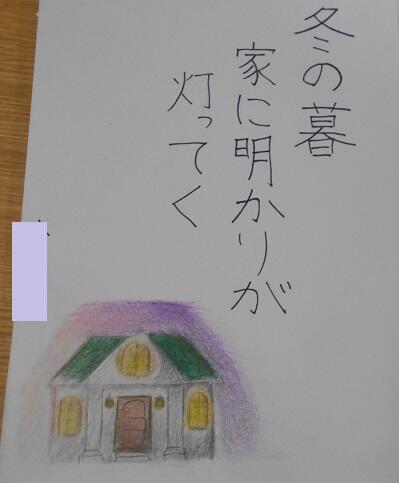 冬の暮
家に明かりが
灯ってく